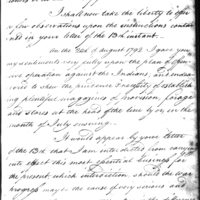 I shall now take the liberty to offer
a few observations upon the instructions contain
ed in your letter of the 13th instant.
On the 22d of August 1792 I gave you
my sentiments very fully upon the plan of offen
sive operation against the Indians, and endeav
ored to shew the prudence & necessity of establish
ing plentiful magazines of provision, forage
and stores at the head of the line by or in the
month of July ensuing.
It would appear by your letter
of the 13th that I am interdicted from carrying
into effect this most essential business for
the present, which interdiction should the war
progress may be the cause of very serious and